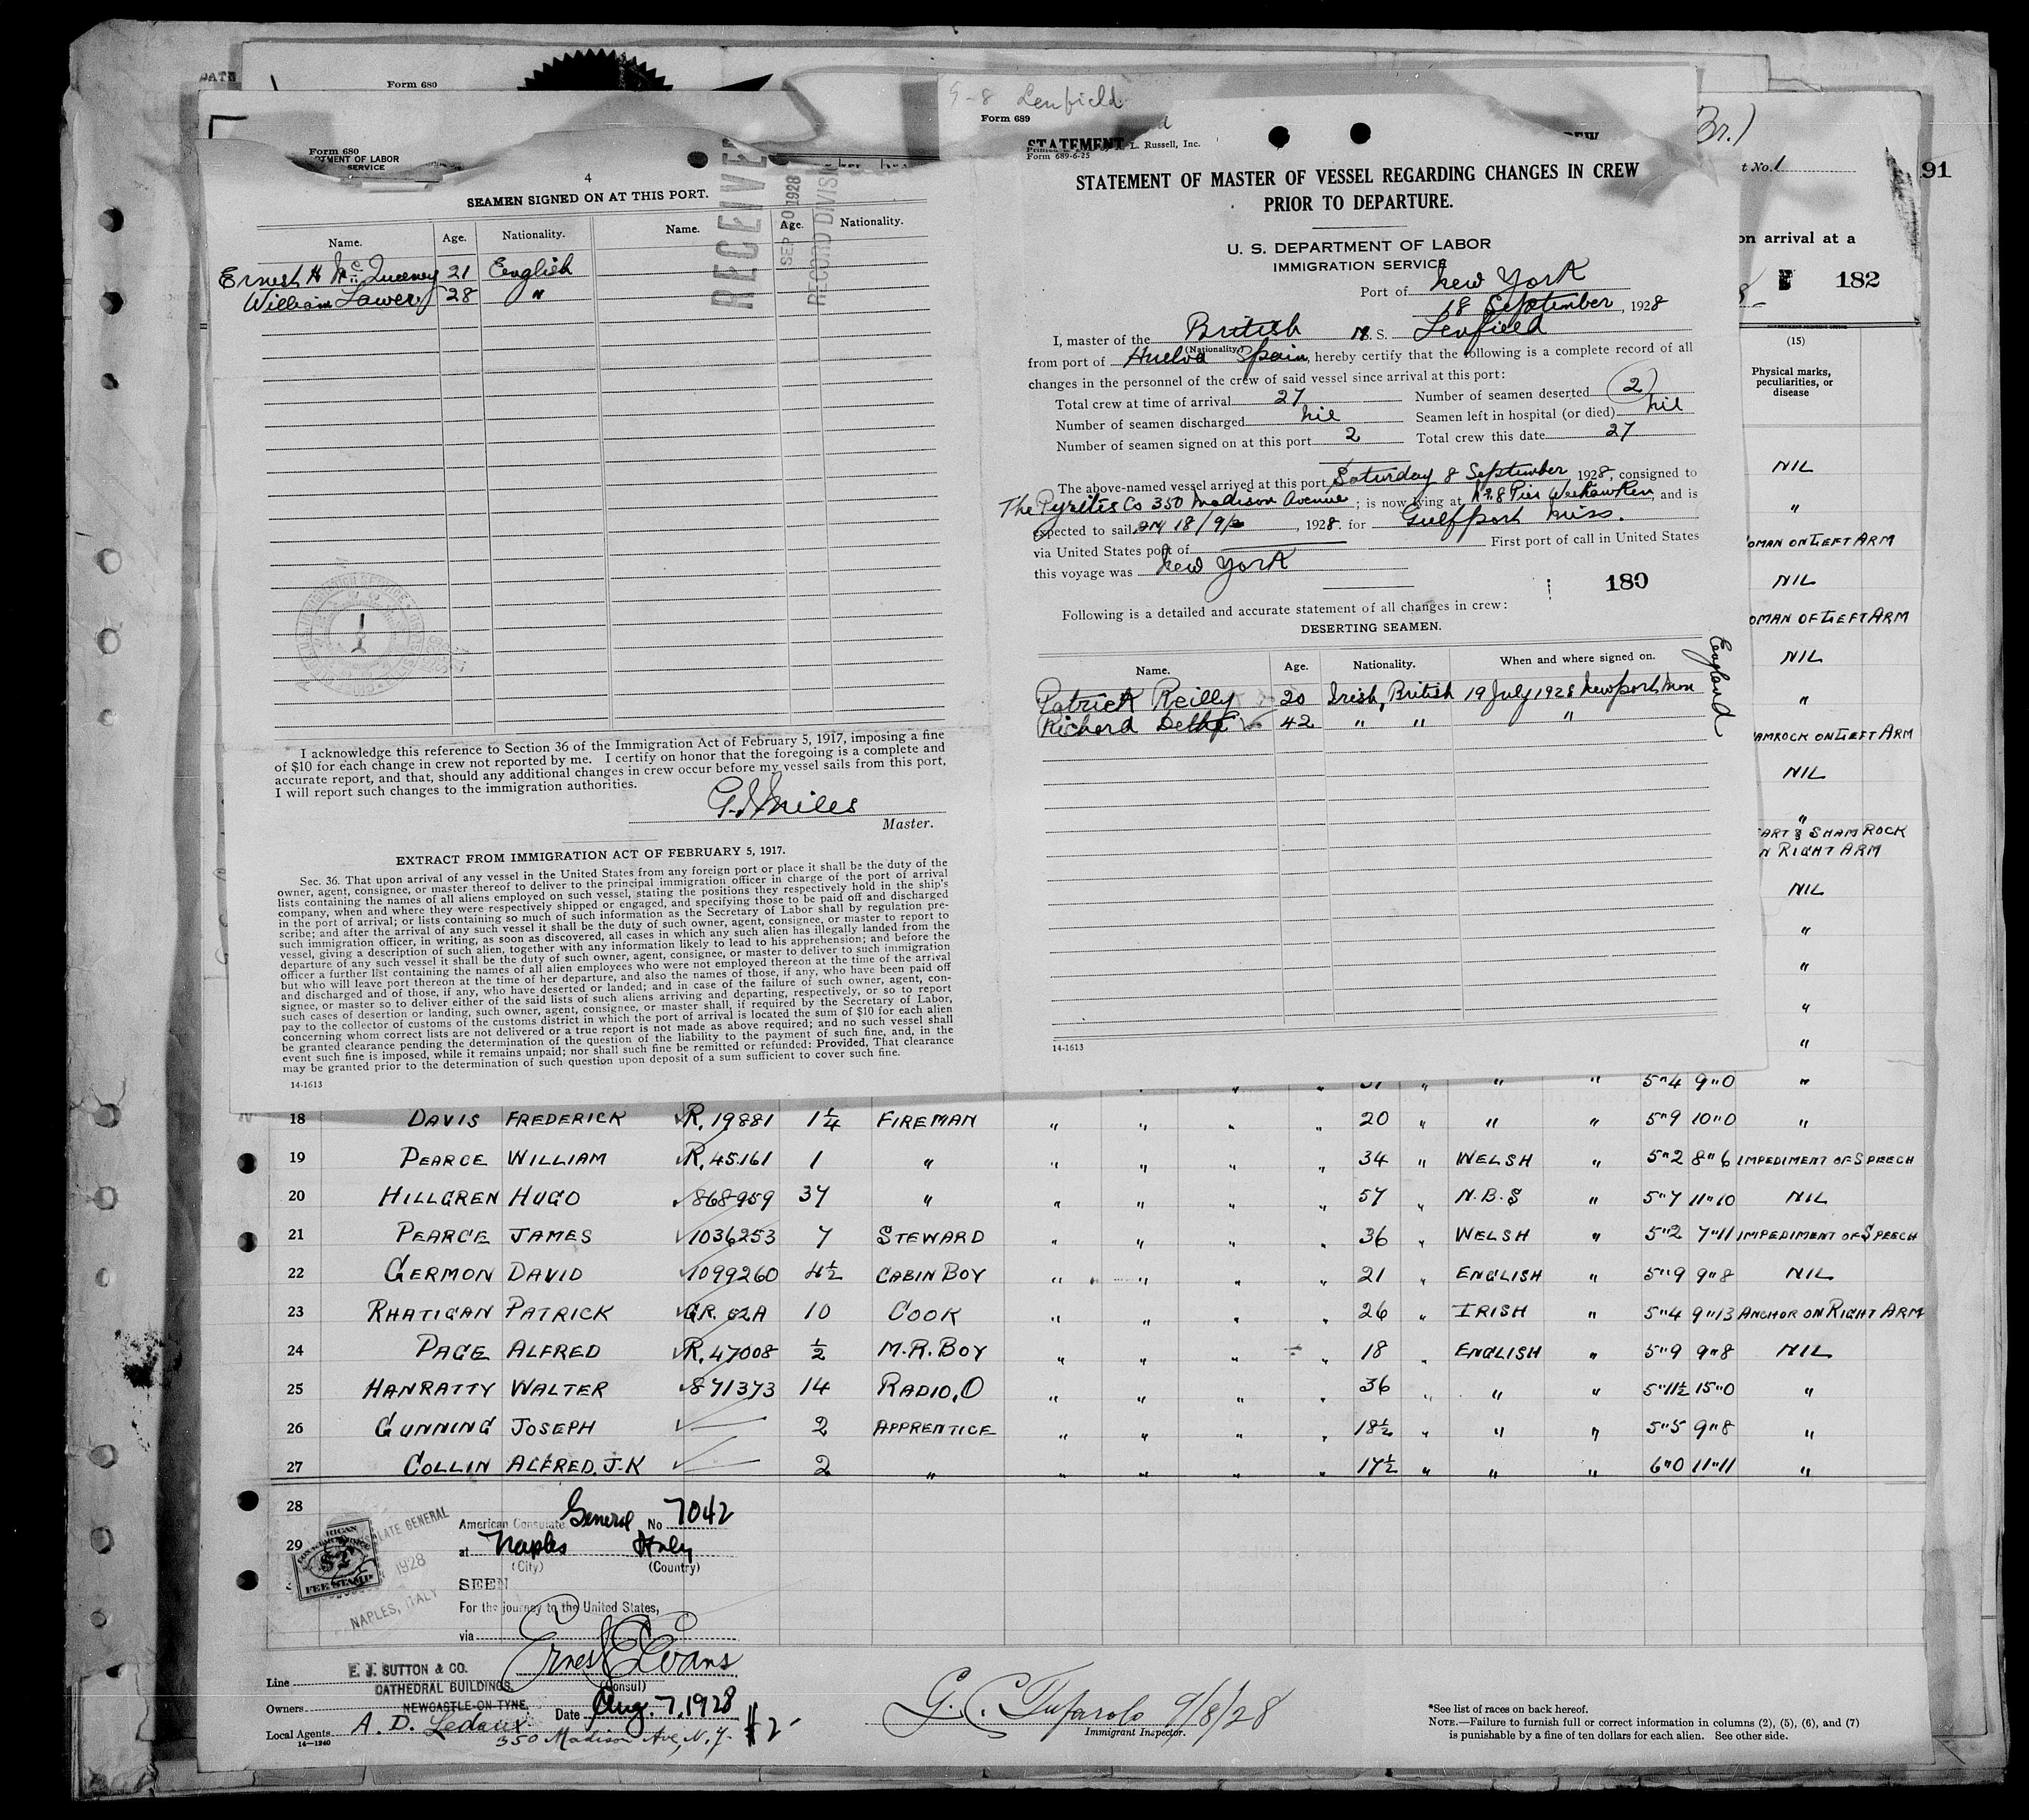 DATE
Form 680
G-8 Lenfield
Form 680
DEPARTMENT OF LABOR
SERVICE
4
SEAMEN SIGNED ON AT THIS PORT.
RECEIVED
SEP 20 1928
RECORD DIVISION
Name. Age. Nationality. Name. Age. Nationality.
Ernest H McQueeney 21 English
William Lawer 28 "
I acknowledge this reference to Section 36 of the Immigration Act of February 5, 1917, imposing a fine
of $10 for each change in crew not reported by me. I certify on honor that the foregoing is a complete and
accurate report, and that, should any additional changes in crew occur before my vessel sails from this port,
I will report such changes to the immigration authorities.
G. J. Miles
Master.
EXTRACT FROM IMMIGRATION ACT OF FEBRUARY 5, 1917.
Sec. 36. That upon arrival of any vessel in the United States from any foreign port or place it shall be the duty of the
owner, agent, consignee, or master thereof to deliver to the principal immigration officer in charge of the port of arrival
lists containing the names of all aliens employed on such vessel, stating the positions they respectively hold in the ship's
company, when and where they were respectively shipped or engaged, and specifying those to be paid off and discharged
in the port of arrival; or lists containing so much of such information as the Secretary of Labor shall by regulation pre-
scribe; and after the arrival of any such vessel it shall be the duty of such owner, agent, consignee, or master to report to
such immigration officer, in writing, as soon as discovered, all cases in which any such alien has illegally landed from the
vessel, giving a description of such alien, together with any information likely to lead to his apprehension; and before the
departure of any such vessel it shall be the duty of such owner, agent, consignee, or master to deliver to such immigration
officer a further list containing the names of all alien employees who were not employed thereon at the time of the arrival
but who will leave port thereon at the time of her departure, and also the names of those, if any, who have been paid off
and discharged and of those, if any, who have deserted or landed; and in case of the failure of such owner, agent, con-
signee, or master so to deliver either of the said lists of such aliens arriving and departing, respectively, or so to report
such cases of desertion or landing, such owner, agent, consignee, or master shall, if required by the Secretary of Labor,
pay to the collector of customs of the customs district in which the port of arrival is located the sum of $10 for each alien
concerning whom correct lists are not delivered or a true report is not made as above required; and no such vessel shall
be granted clearance pending the determination of the question of the liability to the payment of such fine, and, in the
event such fine is imposed, while it remains unpaid; nor shall such fine be remitted or refunded: Provided, That clearance
may be granted prior to the determination of such question upon deposit of a sum sufficient to cover such fine.
14-1613
Form 689
STATEMENT
L. Russell, Inc.
Form 689-6-25
STATEMENT OF MASTER OF VESSEL REGARDING CHANGES IN CREW
PRIOR TO DEPARTURE.
U. S. DEPARTMENT OF LABOR
IMMIGRATION SERVICE
Port of New York
18 September, 1928
I, master of the British M. S. Lenfield
(Nationality.)
from port of Huelva Spain, hereby certify that the following is a complete record of all
changes in the personnel of the crew of said vessel since arrival at this port:
Total crew at time of arrival 27 Number of seamen deserted 2
Number of seamen discharged nil Seamen left in hospital (or died) nil
Number of seamen signed on at this port 2 Total crew this date 27
The above-named vessel arrived at this port Saturday 8 September 1928, consigned to
The Pyrites Co 350 Madison Avenue; is now lying at No 8 Pier Weehawken, and is
expected to sail 18/9/, 1928. for Gulfport Miss.
via United States port of First port of call in United States
this voyage was New York
180
Following is a detailed and accurate statement of all changes in crew:
DESERTING SEAMEN.
Name. Age. Nationality. When and where signed on.
Patrick Reilly 20 Irish, British 19 July 1928 Newport Mon England
Richard 42 " " "
14-1613
Br.)
t No. 1
91
on arrival at a
182
(15)
Physical marks,
peculiarities, or
disease
NIL
"
OMAN ON LEFT ARM
NIL
OMAN OF LEFT ARM
NIL
"
AMROCK ON LEFT ARM
NIL
"
ART & SHAMROCK
N RIGHT ARM
NIL
"
"
"
"
" " " " 5"4 9"0 "
18 DAVIS FREDERICK R. 19881 1¼ FIREMAN " " " " 20 " " " 5"9 10"0 "
19 PEARCE WILLIAM R. 45161 1 " " " " " 34 " WELSH " 5"2 8"6 IMPEDIMENT OF SPEECH
20 HILLGREN HUGO 868959 37 " " " " " 57 " N.B.S " 5"7 11"10 NIL
21 PEARCE JAMES 1036253 7 STEWARD " " " " 36 " WELSH " 5"2 7"11 IMPEDIMENT OF SPEECH
22 GERMON DAVID 1099260 4½ CABIN BOY " " " " 21 " ENGLISH " 5"9 9"8 NIL
23 RHATIGAN PATRICK GR. 62A 10 COOK " " " " 26 " IRISH " 5"4 9"13 ANCHOR ON RIGHT ARM
24 PAGE ALFRED R. 47008 ½ M.R. BOY " " " " 18 " ENGLISH " 5"9 9"8 NIL
25 HANRATTY WALTER 871373 14 RADIO, O " " " " 36 " " " 5"11½ 15"0 "
26 GUNNING JOSEPH 2 APPRENTICE " " " " 18½ " " " 5"5 9"8 "
27 COLLIN ALFRED. J-K 2 " " " " " 17½ " " " 6"0 11"11 "
28
29
AMERICAN
$2
FEE STAMP
CONSULATE GENERAL
1928
NAPLES, ITALY
American Consulate General No 7042
at Naples Italy
(City) (Country)
SEEN
For the journey to the United States,
via
Ernest E Evans
(Consul)
Date Aug. 7, 1928
$2-
Line E. J. SUTTON & CO.
CATHEDRAL BUILDINGS,
Owners NEWCASTLE-ON-TYNE.
Local Agents A. D. Ledoux
350 Madison Ave, N.Y.
14-1240
G. C. Tufarolo 9/8/28
Immigrant Inspector.
*See list of races on back hereof.
NOTE.—Failure to furnish full or correct information in columns (2), (5), (6), and (7)
is punishable by a fine of ten dollars for each alien. See other side.